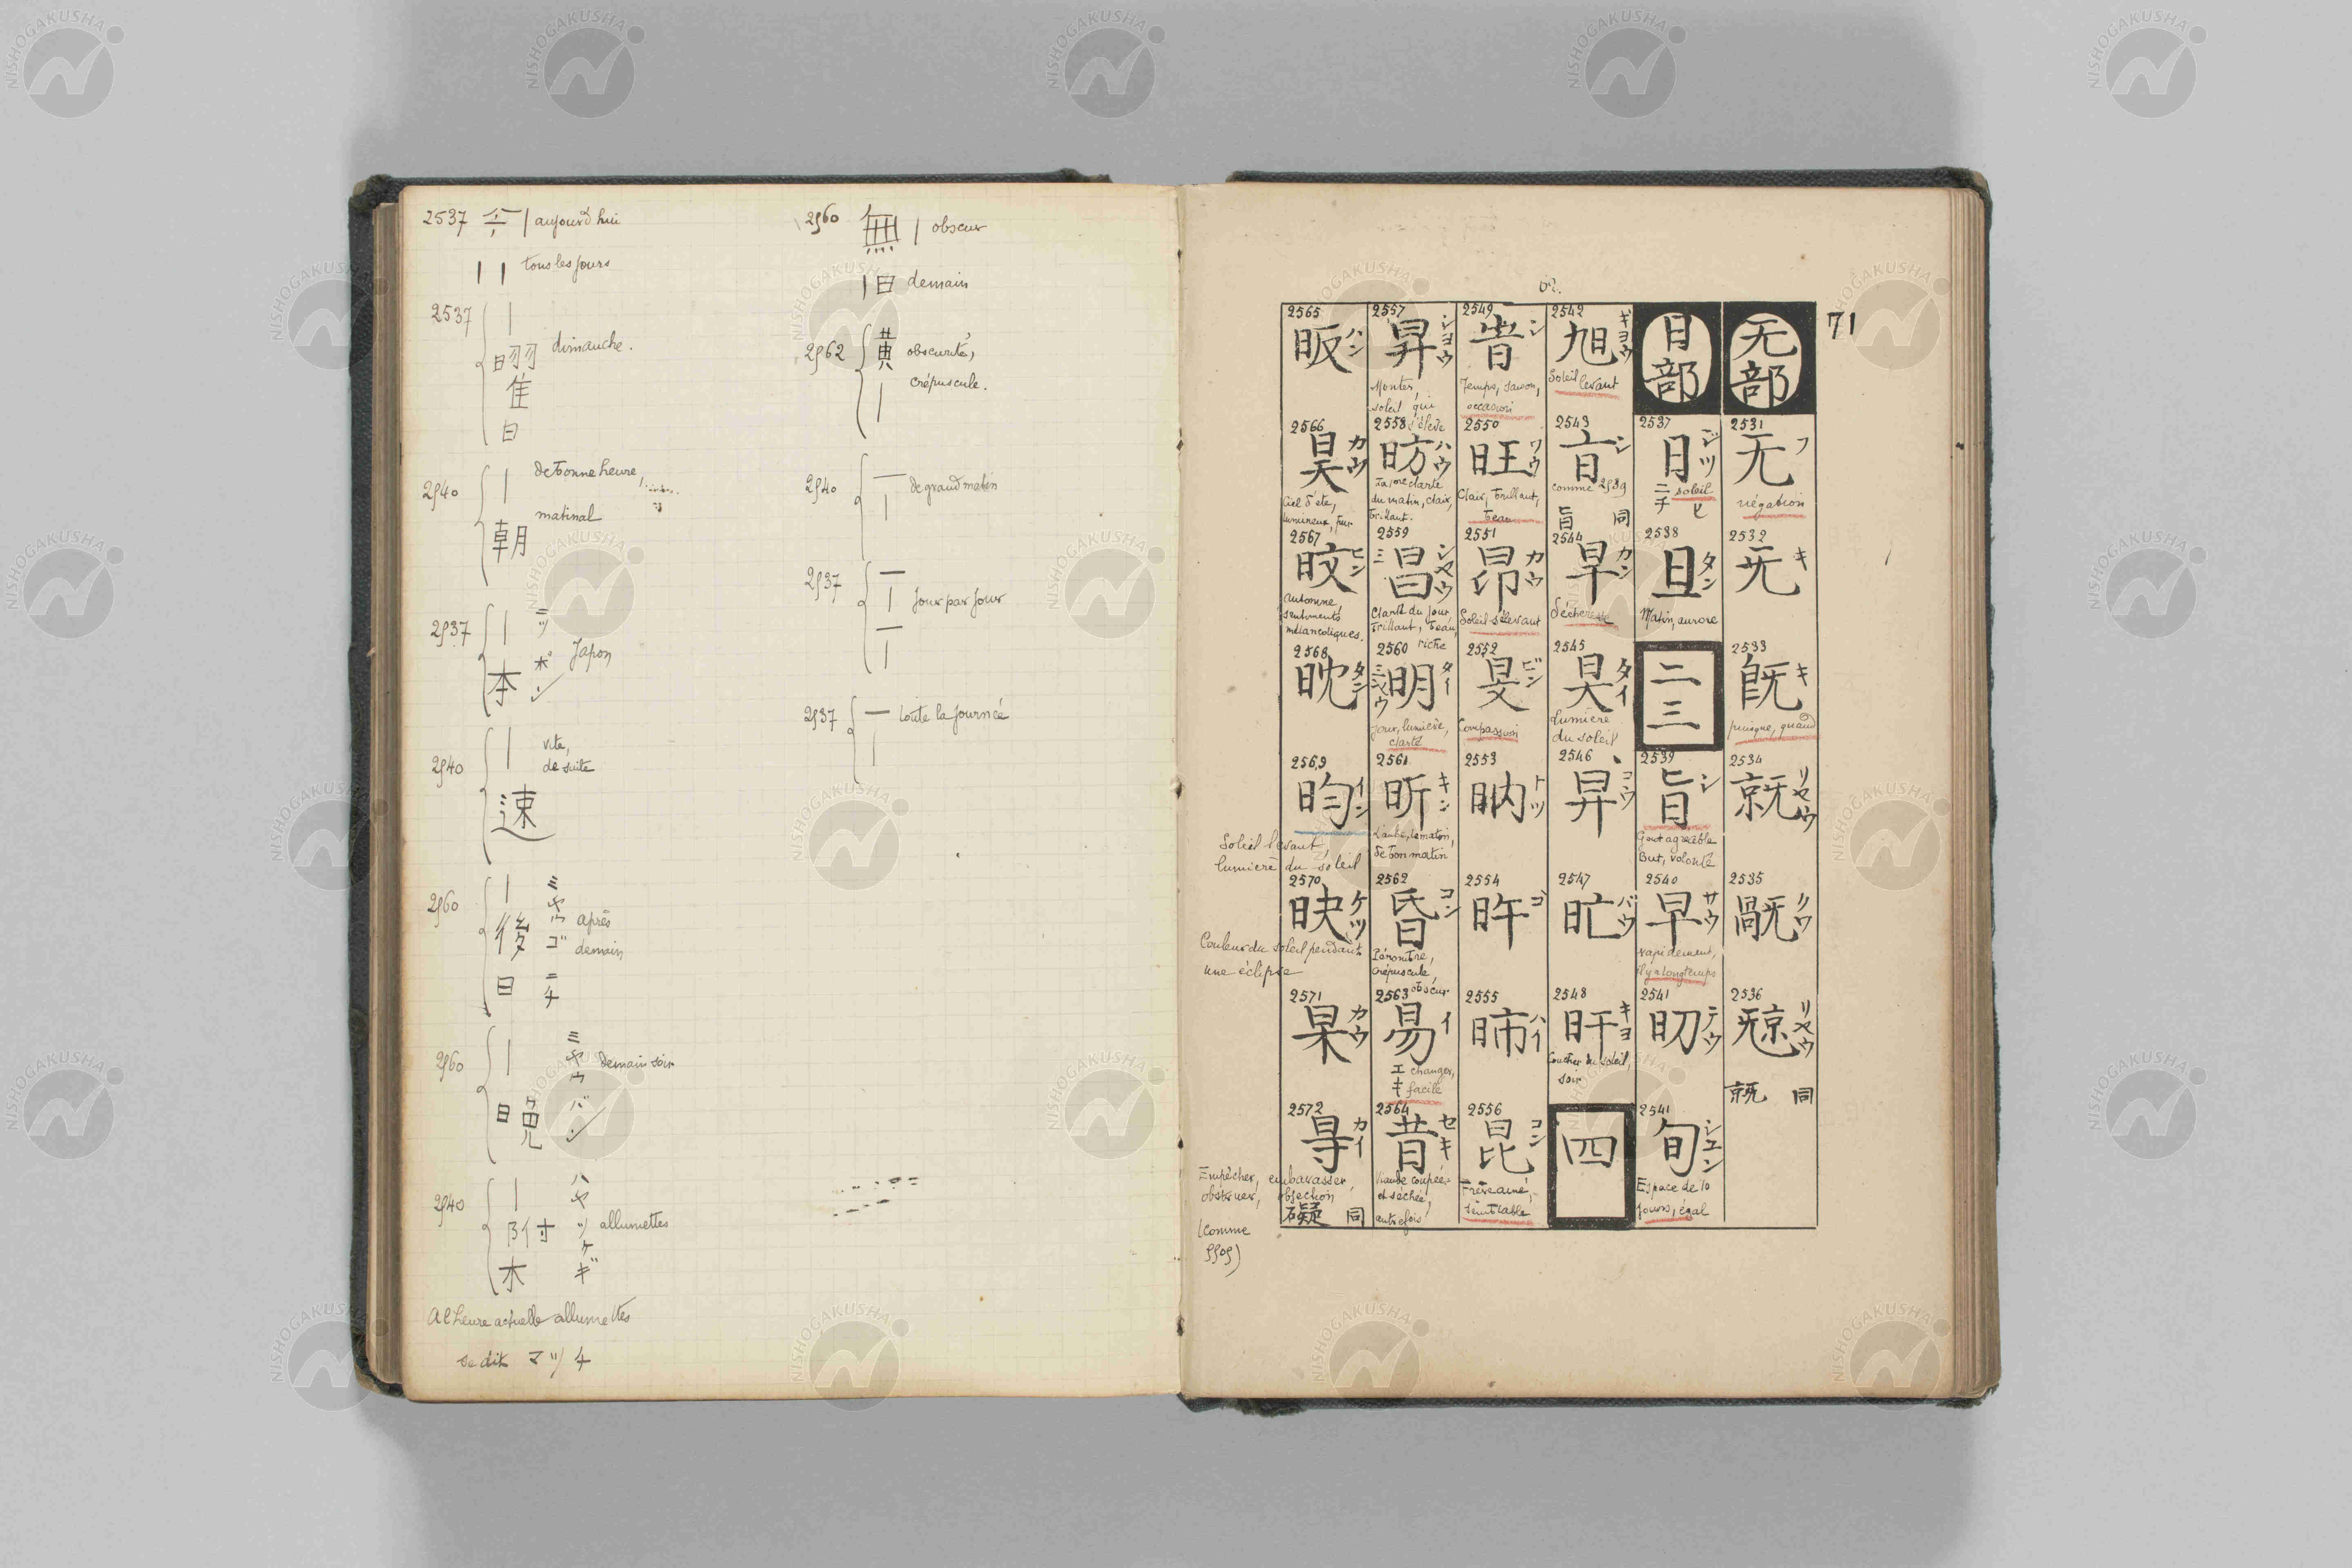 2537 今 | aujourd'hui
| | tous les jours
2537 | 曜 日 dimanche.
2540 | 朝 de bonne heure,
matinal
2537 | 本 ニッポン Japon
2540 | 速 vite,
de suite
2560 | 後日 ミャウゴニチ après
demain
2560 | 晩 ミャウバン demain soir
2540 | 附木 ハヤツケギ allumettes
A l'heure actuelle allumettes
se dit マツチ
2560 無 | obscur
| 日 demain
2562 黄 | obscurité,
crépuscule.
2540 一 | de grand matin
2537 一 | 一 | jour par jour
2537 一 | toute la journée
71
无部
2531 无 フ
négation
2532 旡 キ
2533 既 キ
puisque, quand
2534 リヤウ
2535 クワ
2536 リヤウ
同
日部
2537 日 ジツ
ニチ soleil
2538 旦 タン
Matin, aurore
二三
2539 旨 シ
Gout agréable
But, volonté
2540 早 サウ
rapidement,
il y a longtemps
2541 テウ
2541 旬 シユン
Espace de 10
jours, égal
2542 旭 ギヨウ
Soleil levant
2543 シ
comme 2539
旨 同
2544 旱 カン
Sécheresse
2545 タイ
Lumière
du soleil
2546 コウ
2547 バウ
2548 旰
Coucher du soleil,
soir
四
2549 シ
Temps, saison,
occasion
2550 旺 ワウ
Clair, brillant,
beau
2551 昂 カウ
Soleil se levant
2552 旻 ビン
Compassion
2553 トツ
2554 旿 ゴ
2555 ハイ
2556 昆 コン
Frère ainé,
semblable
2557 昇 シヨウ
Monter,
soleil qui
s'élève
2558 昉 ハウ
La 1ere clarté
du matin, clair,
brillant.
2559 昌 シヤウ
Clarté du jour
brillant, beau,
riche
2560 明 ミヤウ
jour, lumière,
clarté
2561 昕 キン
L'aube, le matin,
de bon matin
2562 昏 コン
Pénombre,
crépuscule,
obscur
2563 易 イ
エキ changer,
facile
2564 昔 セキ
Viande coupée
et séchée,
autrefois
2565 昄 ハン
2566 昊 カウ
Ciel d'été,
lumineux, pur
2567 旼 ビン
Automne,
sentiments
mélancoliques.
2568 タン
2569 昀 イン
Soleil levant,
lumière du soleil
2570 ケツ
Couleur du soleil pendant
une éclipse
2571 杲 カウ
2572 カイ
Empêcher, embarasser,
obstruer, objection
礙 同
(comme
5505)
NISHOGAKUSHA